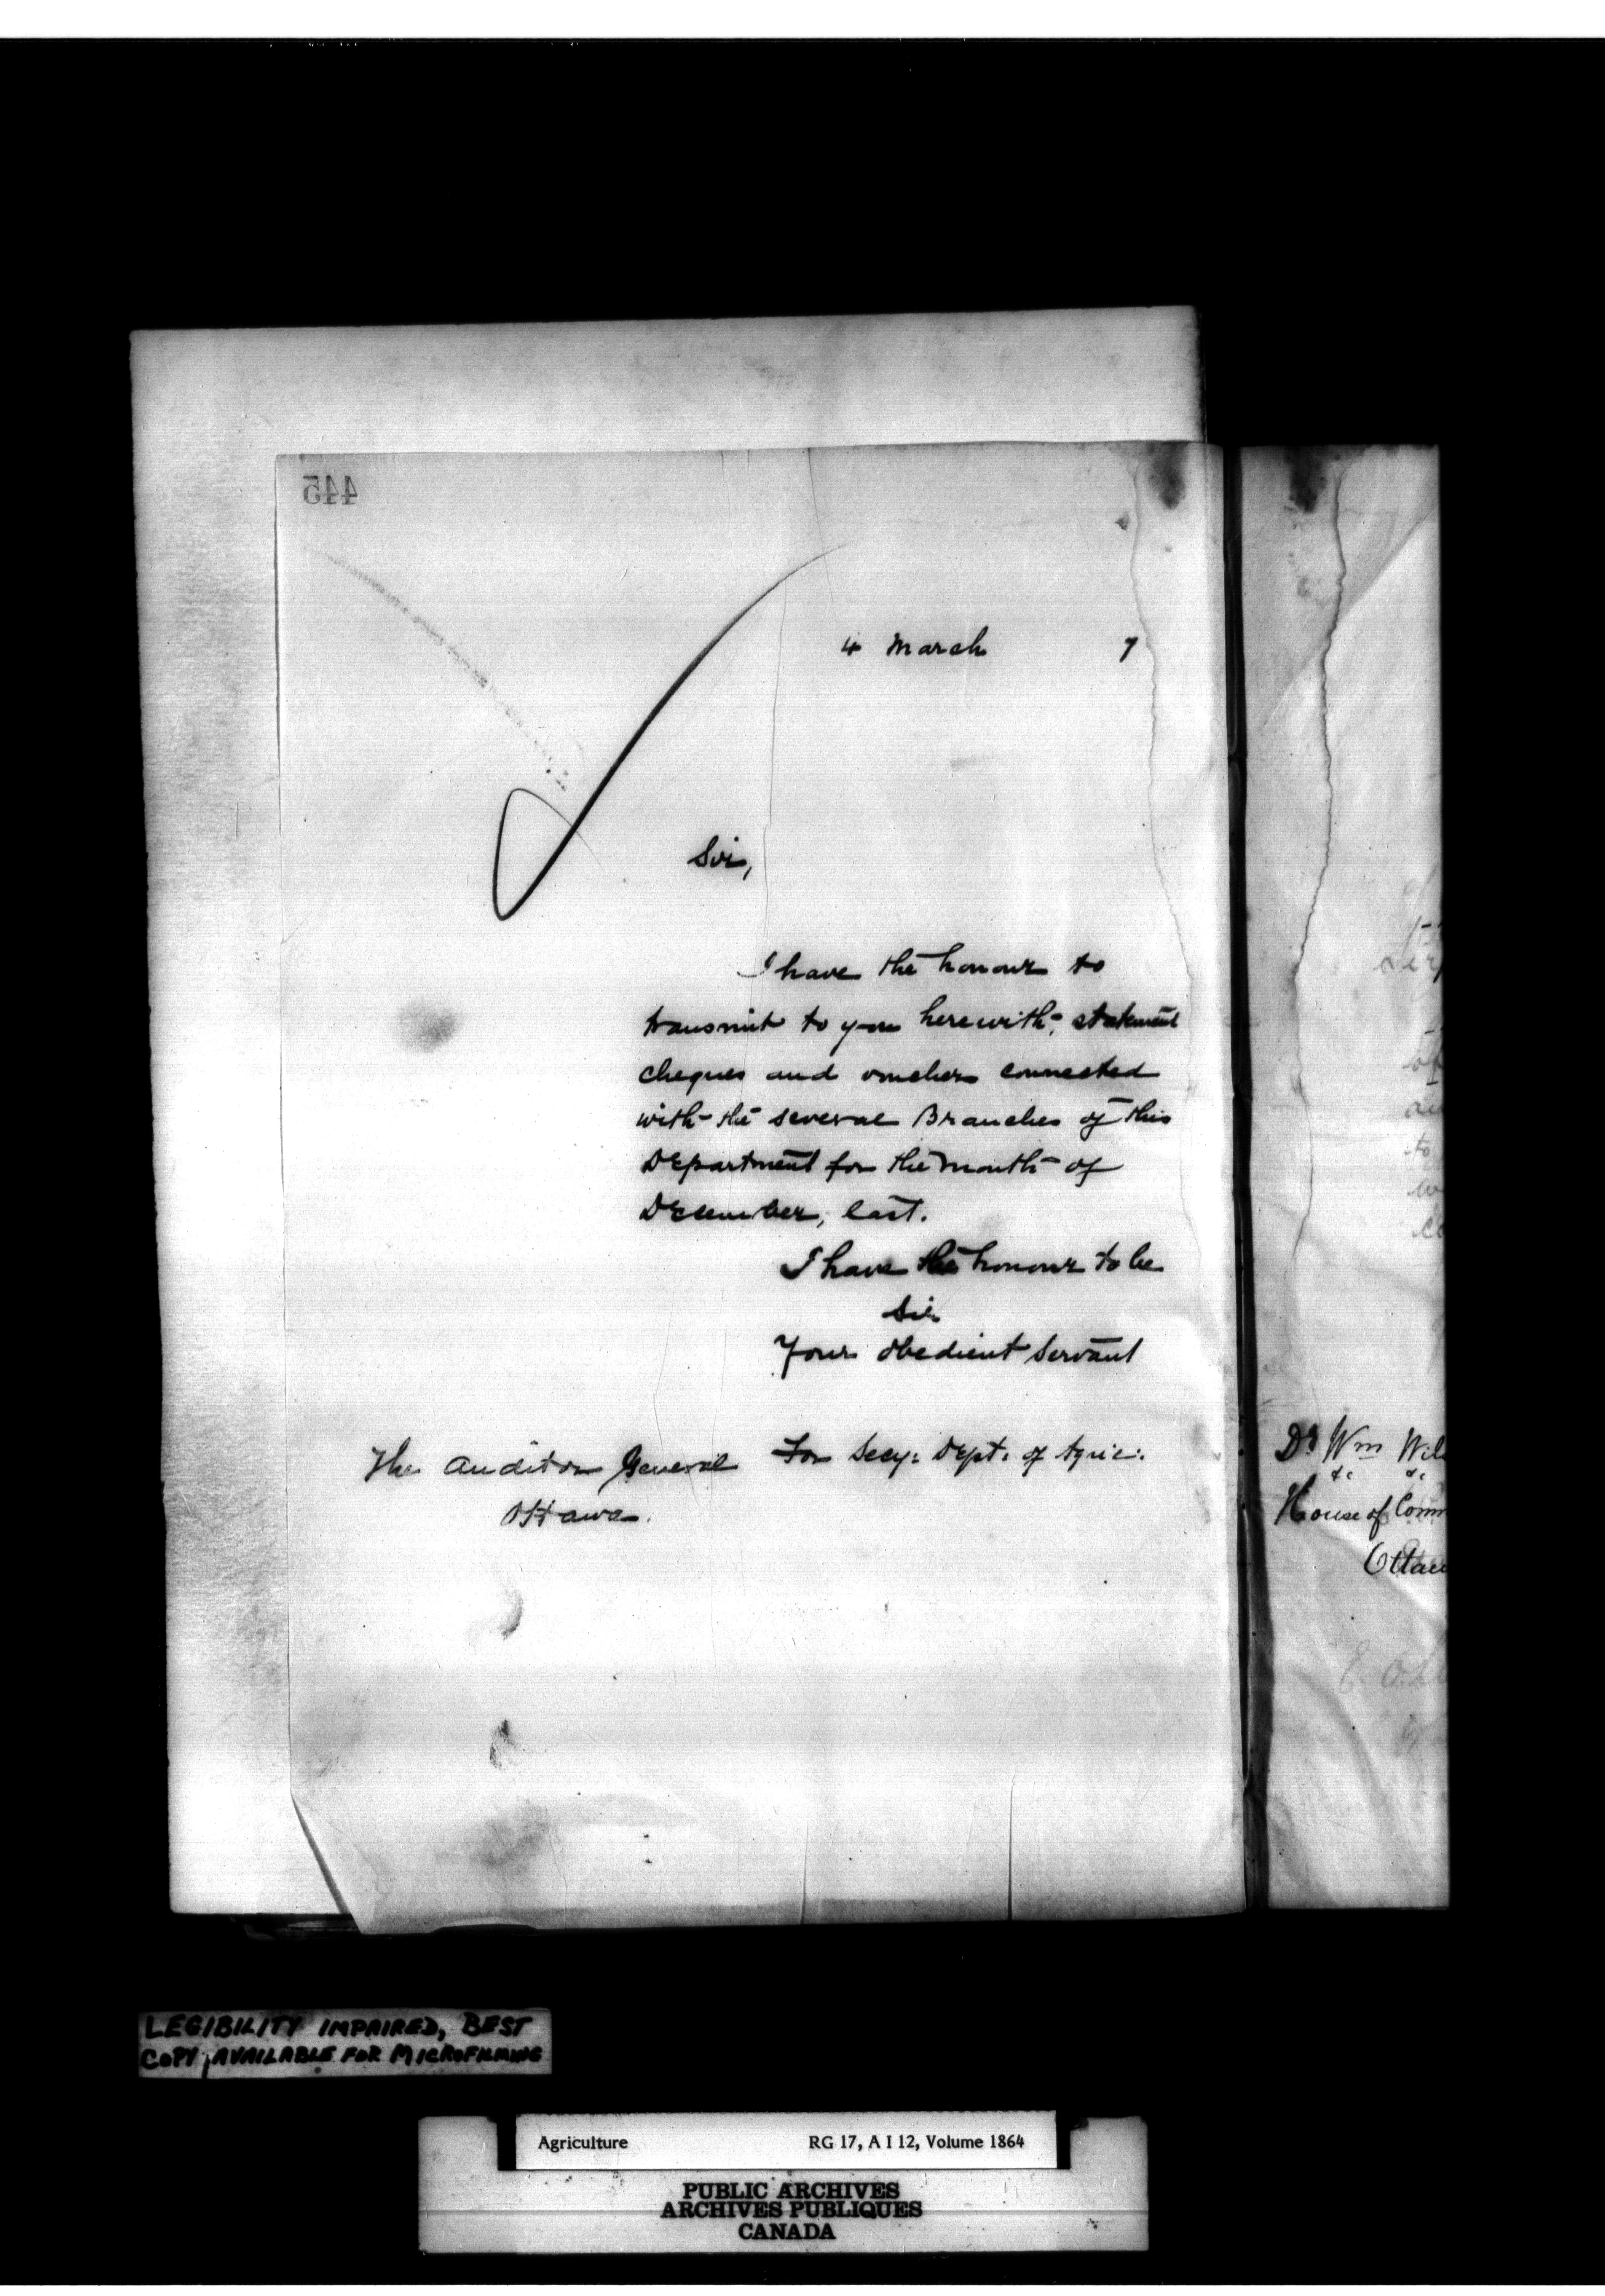 445
4 March 7
Sir,
I have the honour to
transmit to you herewith, statement
cheques and vouchers connected
with the several Branches of this
Department for the month of
December, last.
I have the honour to be
Sir
Your obedient servant
For Secy: Dept. of Agric:
The Auditor General
Ottawa.
Dr Wm Wil
&c &c
House of Comm
Ottaw
LEGIBILITY IMPAIRED, BEST
COPY AVAILABLE FOR MICROFILMING
Agriculture RG 17, A I 12, Volume 1864
PUBLIC ARCHIVES
ARCHIVES PUBLIQUES
CANADA